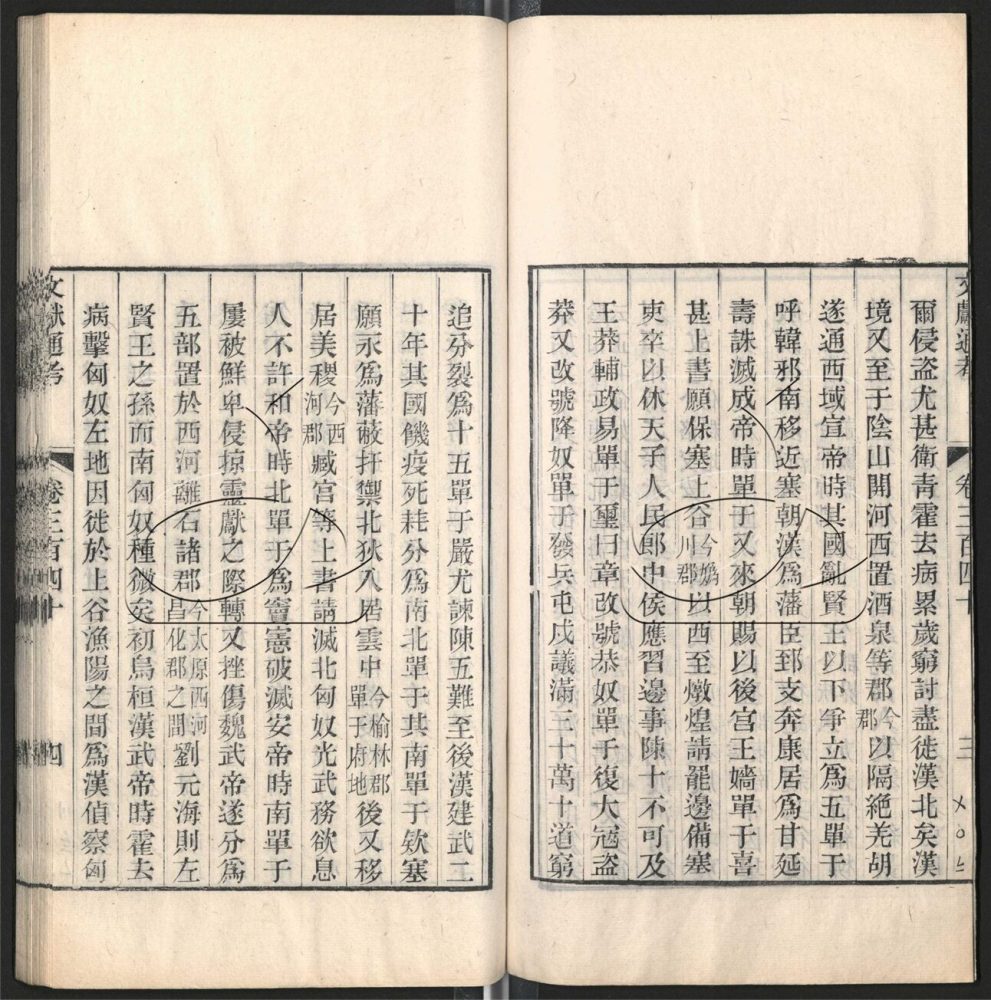 文獻通考 卷三百四十 三
爾侵盗尤甚衛青霍去病累歲窮討盡徙漢北矣漢
境又至于陰山開河西置酒泉等郡今郡以隔絶羌胡
遂通西域宣帝時其國亂賢王以下爭立爲五單于
呼韓邪南移近塞朝漢爲藩臣郅支奔康居爲甘延
壽誅滅成帝時單于又來朝賜以後宫王嬙單于喜
甚上書願保塞上谷今嬀川郡以西至燉煌請罷邊備塞
吏卒以休天子人民郎中侯應習邊事陳十不可及
王莽輔政易單于璽曰章改號恭奴單于復大冦盗
莽又改號降奴單于發兵屯戍議滿三十萬十道窮
追分裂爲十五單于嚴尤諫陳五難至後漢建武二
十年其國饑疫死耗分爲南北單于其南單于欵塞
願永爲藩蔽扞禦北狄入居雲中今榆林郡單于府地後又移
居美稷今西河郡臧宫等上書請滅北匈奴光武務欲息
人不許和帝時北單于爲竇憲破滅安帝時南單于
屢被鮮卑侵掠靈獻之際轉又挫傷魏武帝遂分爲
五部置於西河離石諸郡今太原西河昌化郡之間劉元海則左
賢王之孫而南匈奴種微矣初烏桓漢武帝時霍去
病擊匈奴左地因徙於上谷漁陽之間爲漢偵察匈
文獻通考 卷三百四十 四